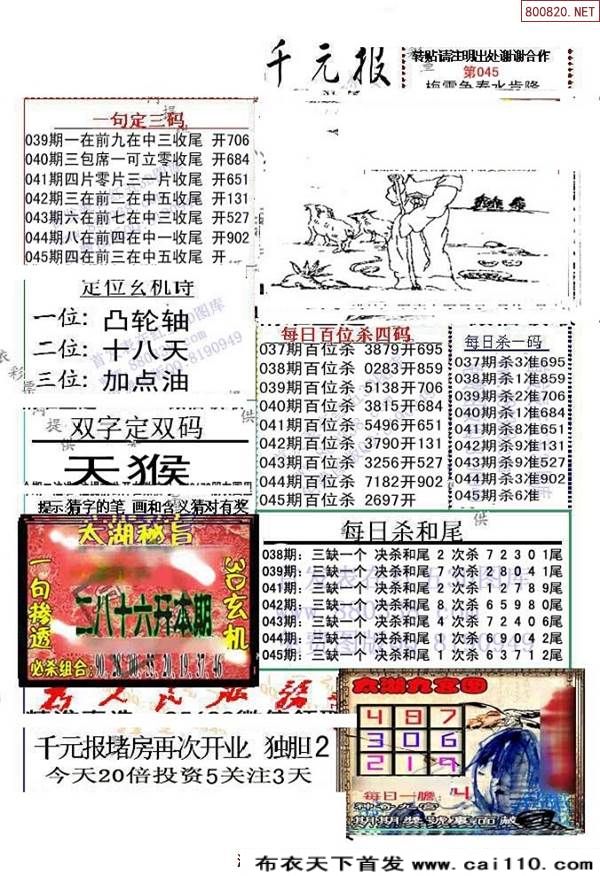 800820.NET
千元报
转贴请注明出处谢谢合作
第045
一句定三码
039期一在前九在中三收尾 开706
040期三包席一可立零收尾 开684
041期四片零片三一片收尾 开651
042期三在前三在中五收尾 开131
043期六在前七在中三收尾 开527
044期八在前四在中一收尾 开902
045期四在前三在中五收尾 开
定位玄机诗
一位: 凸轮轴
二位: 十八天
三位: 加点油
双字定双码
天猴
提示:猜字的笔 画和含义猜对有奖
每日百位杀四码
037期百位杀 3879开695
038期百位杀 0283开859
039期百位杀 5138开706
040期百位杀 3815开684
041期百位杀 5496开651
042期百位杀 3790开131
043期百位杀 3256开527
044期百位杀 7182开902
045期百位杀 2697开
每日杀一码
037期杀3准695
038期杀1准859
039期杀2准706
040期杀1准684
041期杀8准651
042期杀9准131
043期杀9准527
044期杀3准902
045期杀6准
每日杀和尾
038期: 三缺一个 决杀和尾 2 次杀 7 2 3 0 1尾
039期: 三缺一个 决杀和尾 7 次杀 2 8 3 0 4 1尾
041期: 三缺一个 决杀和尾 2 次杀 1 2 7 8 9尾
042期: 三缺一个 决杀和尾 8 次杀 6 5 9 8 0尾
043期: 三缺一个 决杀和尾 4 次杀 7 2 4 0 6尾
044期: 三缺一个 决杀和尾 0 次杀 6 0 9 0 4 2尾
045期: 三缺一个 决杀和尾 1 次杀 6 0 3 7 1 2尾
太湖秘旨
一句掺透
3D玄机
二八十六开本期
必杀组合:00.28.00.33.20.19.37.46
千元报堵房再次开业 独胆2
今天20倍投资5关注3天
太湖九宫图
4 8 7
3 0 6
2 1 9
每日一胆: 4
布衣天下首发 www.cai110.com